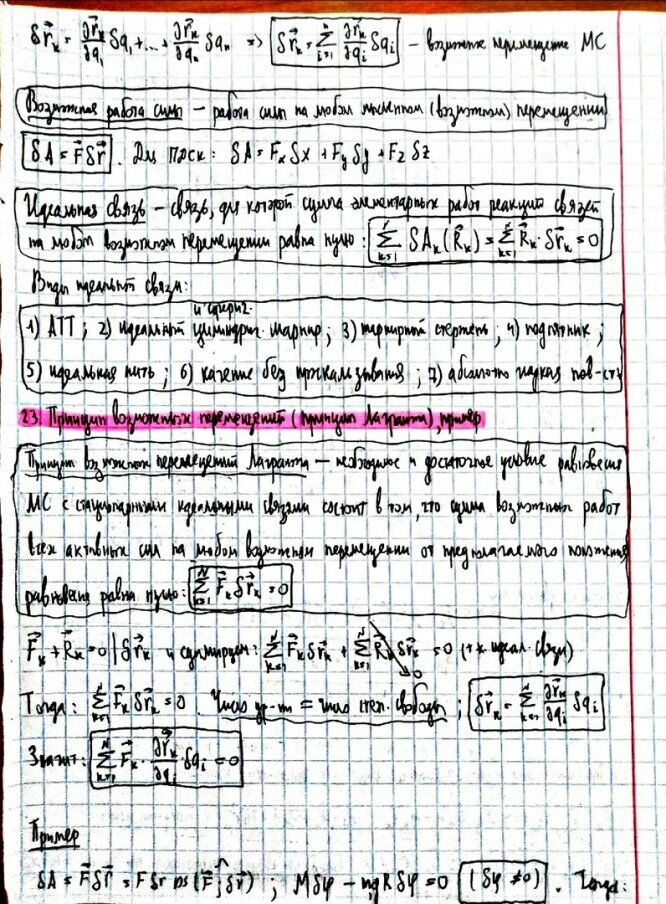 δr⃗ₖ = ∂r⃗ₖ/∂q₁ δq₁ + ... + ∂r⃗ₖ/∂qₙ δqₙ => δr⃗ₖ = Σᵢ₌₁ⁿ ∂r⃗ₖ/∂qᵢ δqᵢ – возможное перемещение МС
Возможная работа силы – работа силы на любом мысленном (возможном) перемещении
δA = F⃗δr⃗. Для ПДСК: δA = Fₓδx + Fᵧδy + F_zδz
Идеальная связь – связь, для которой сумма элементарных работ реакций связей
на любом возможном перемещении равна нулю: Σₖ₌₁ᴺ δAₖ(R⃗ₖ) = Σₖ₌₁ᴺ R⃗ₖ·δr⃗ₖ = 0
Виды идеальных связи:
и сферич.
1) АТТ; 2) идеальный цилиндр. шарнир; 3) шарнирный стержень; 4) подпятник;
5) идеальная нить; 6) качение без проскальзывания; 7) абсолютно гладкая пов-сть
23. Принцип возможных перемещений (принцип Лагранжа), пример
Принцип возможных перемещений Лагранжа – необходимое и достаточное условие равновесия
МС с стационарными идеальными связями состоит в том, что сумма возможных работ
всех активных сил на любом возможном перемещении от предполагаемого положения
равновесия равна нулю: Σₖ₌₁ᴺ F⃗ₖδr⃗ₖ = 0
F⃗ₖ + R⃗ₖ = 0 | δr⃗ₖ и суммируем: Σₖ₌₁ᴺ F⃗ₖδr⃗ₖ + Σₖ₌₁ᴺ R⃗ₖδr⃗ₖ = 0 (т.к идеал. связи)
0
Тогда: Σₖ₌₁ᴺ F⃗ₖδr⃗ₖ = 0. Число ур-ий = число степ. свободы; δr⃗ₖ = Σₖ₌₁ᴺ ∂r⃗ₖ/∂qᵢ δqᵢ
Значит: Σₖ₌₁ᴺ F⃗ₖ · ∂r⃗ₖ/∂qᵢ · δqᵢ = 0
Пример
δA = F⃗δr⃗ = Fδr cos(F⃗;^δr⃗); Mδφ – mgRδφ = 0 (δφ ≠ 0). Тогда: